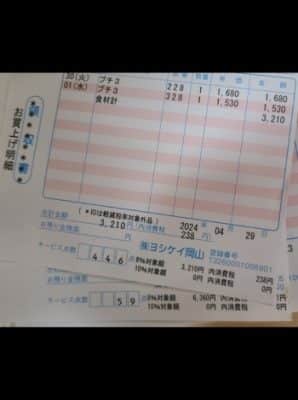 30(火) プチ3 228 1 1,680 1,680
01(水) プチ3 328 1 1,530 1,530
食材計 3,210
お買上げ明細
(*印は軽減税率対象外品)
2024 04 29
合計金額 3,210円(内消費税 238円)
お預り金残高
㈱ヨシケイ岡山 登録番号
サービス点数 446点
8%対象額 3,210円 内消費税 238円
10%対象額 0円 内消費税 0円
お預り金残高
サービス点数 59点
8%対象額 6,360円 内消費税
10%対象額 0円 内消費税